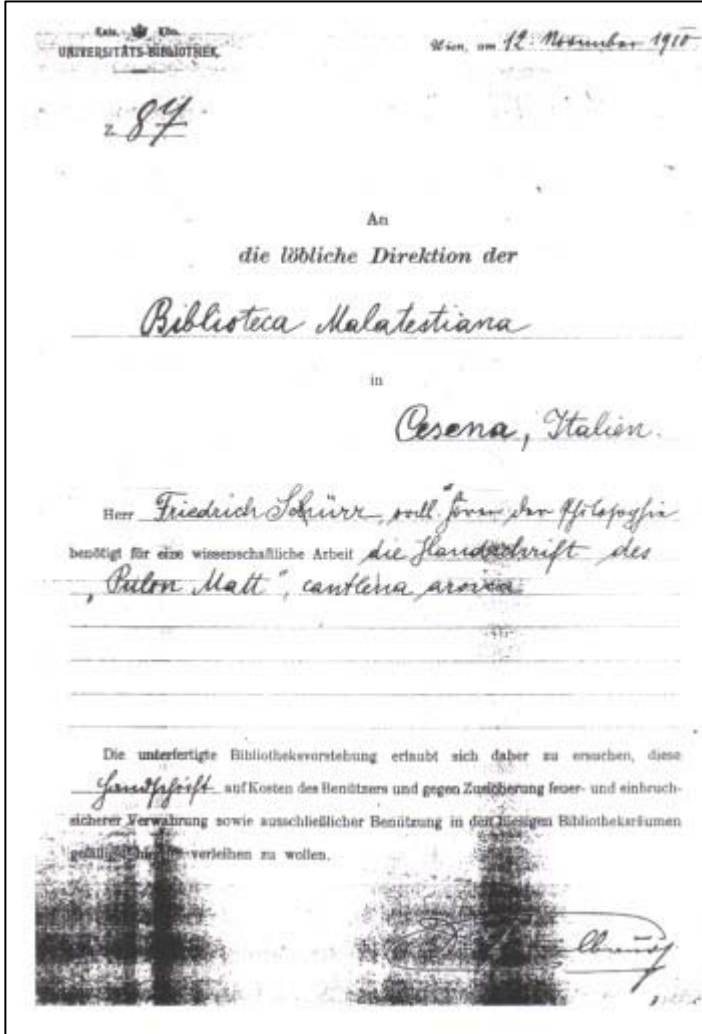 Kais. Kön.
UNIVERSITÄTS-BIBLIOTHEK.
Wien, am 12. November 1910
Z. 87
An
die löbliche Direktion der
Biblioteca Malatestiana
in
Cesena, Italien.
Herr Friedrich Schürr, Hörer der Philosophie
benötigt für eine wissenschaftliche Arbeit die Handschrift des
„Pulon Matt“, cantlena arovca
Die unterfertigte Bibliotheksvorstehung erlaubt sich daher zu ersuchen, diese
Handschrift auf Kosten des Benützers und gegen Zusicherung feuer- und einbruch-
sicherer Verwahrung sowie ausschließlicher Benützung in den hiesigen Bibliotheksräumen
verleihen zu wollen.